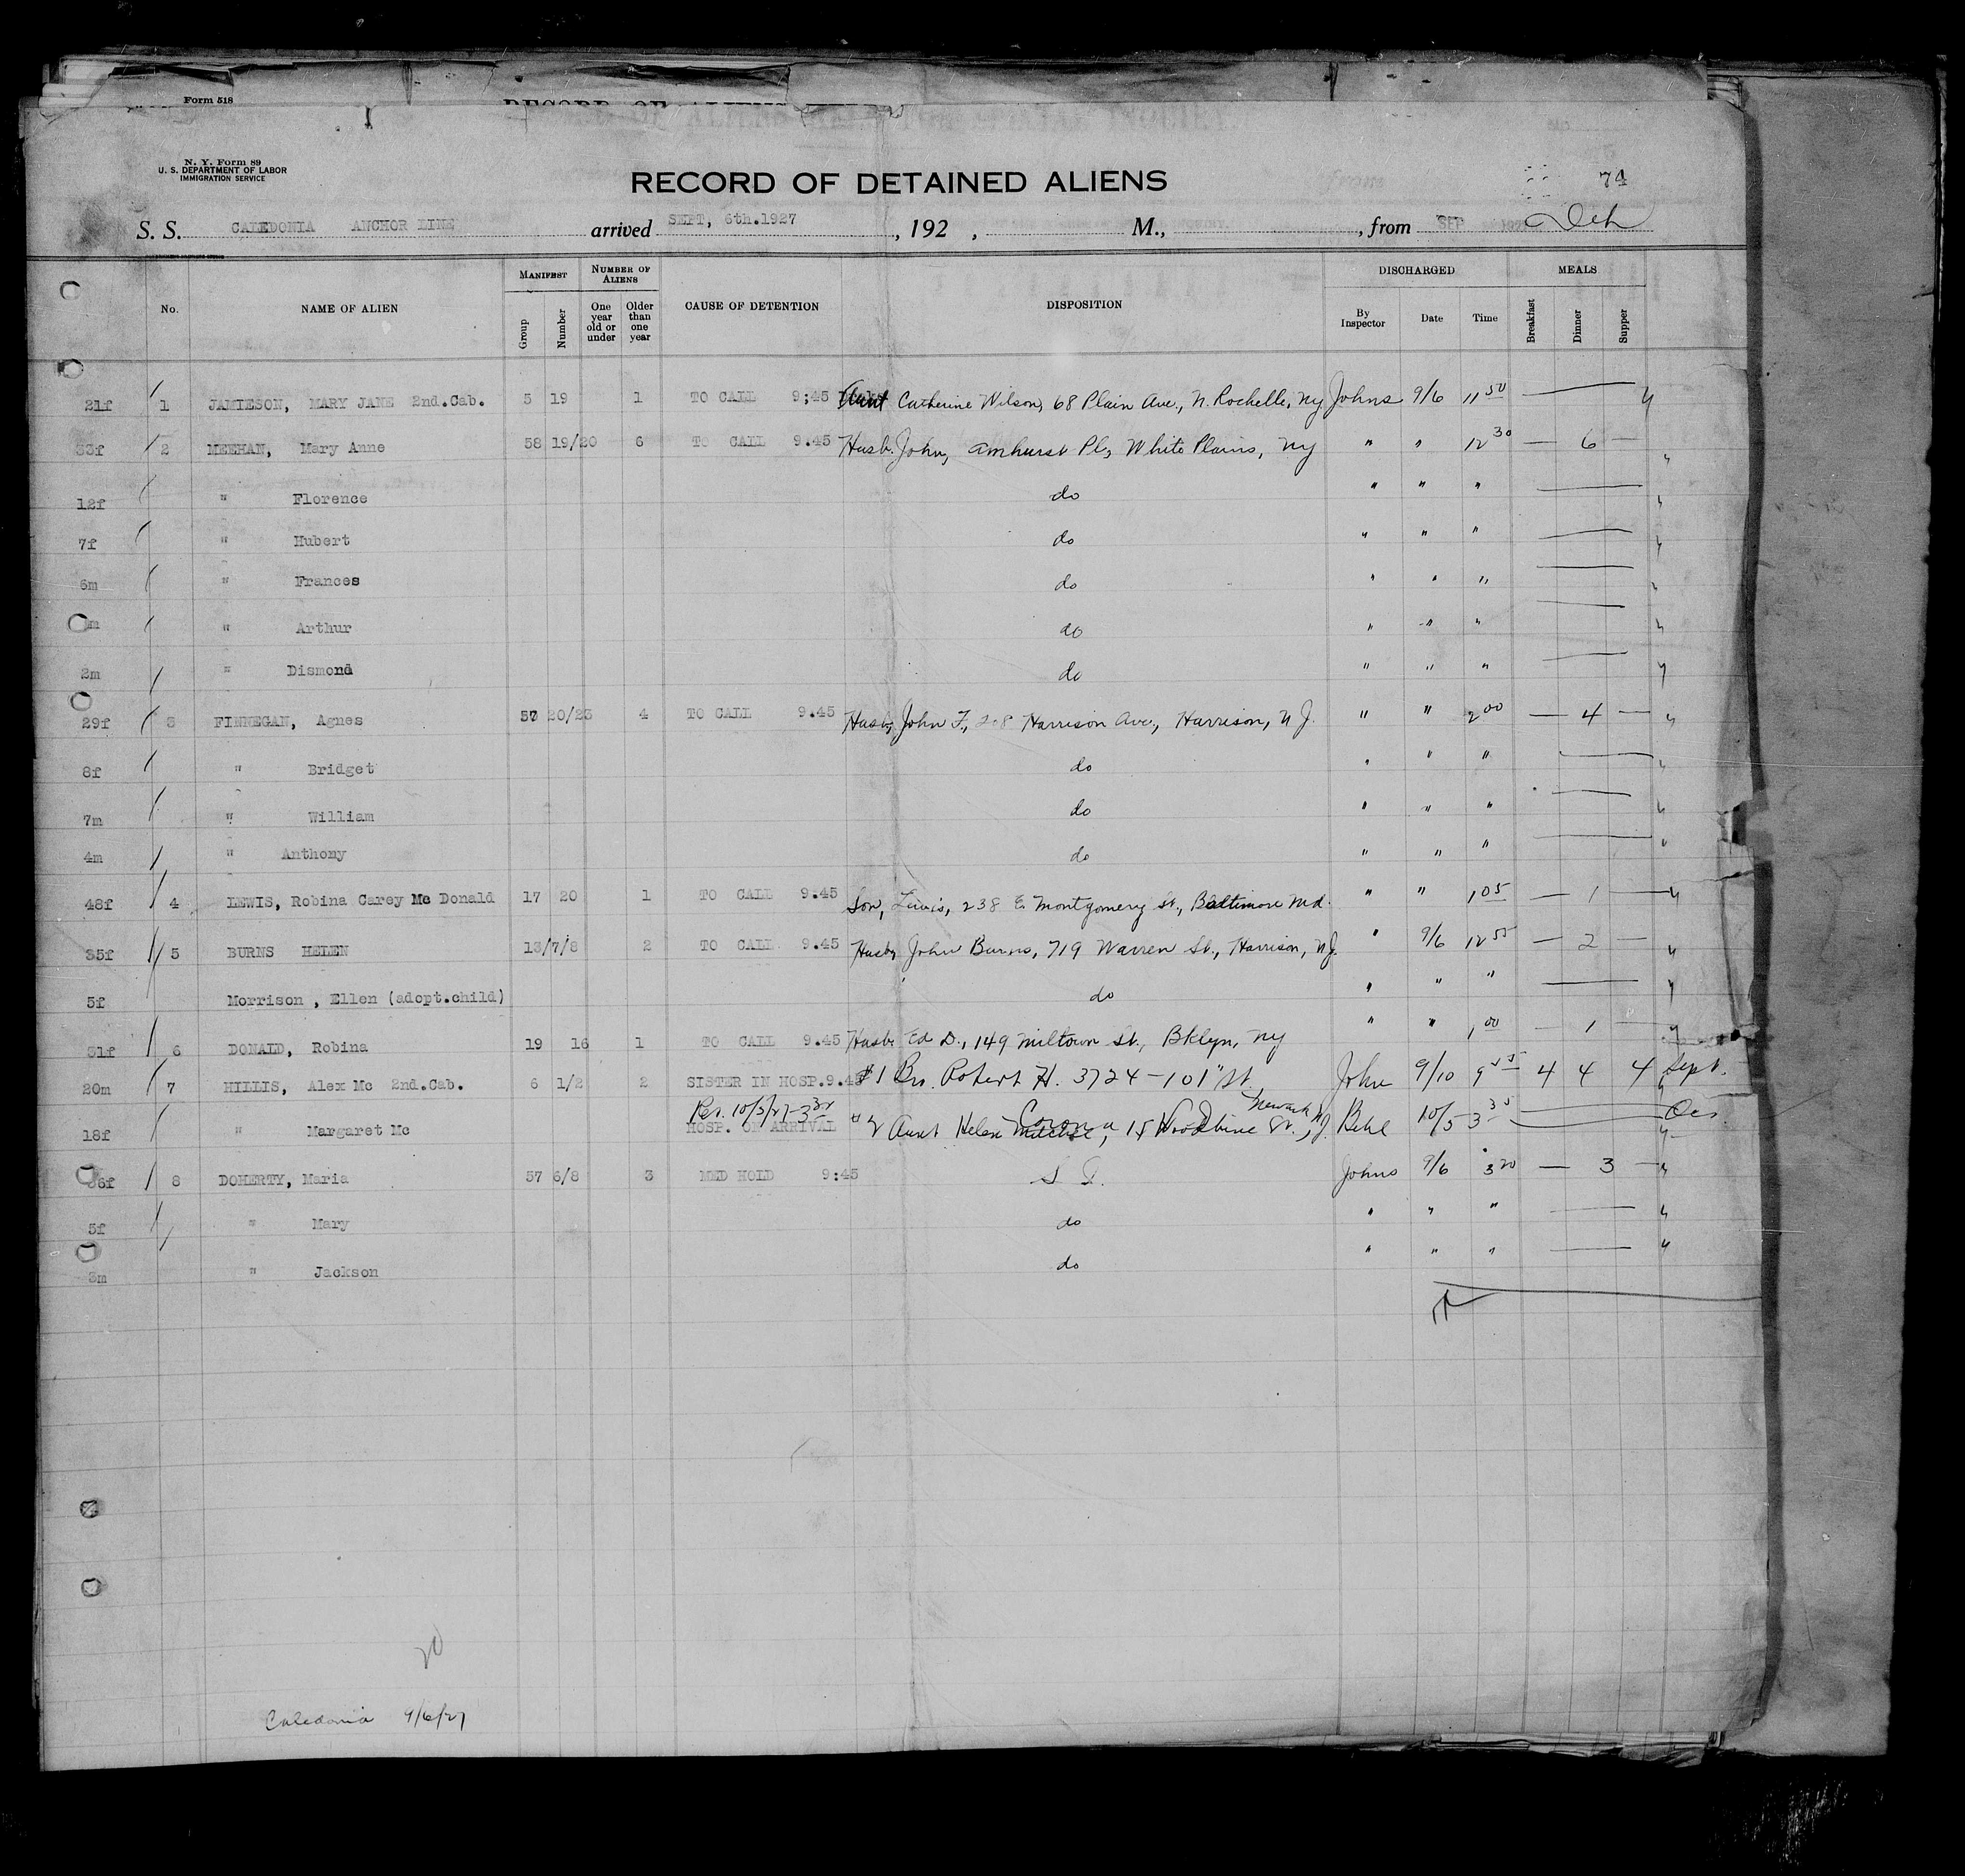 Form 518
N. Y. Form 89
U. S. DEPARTMENT OF LABOR
IMMIGRATION SERVICE
RECORD OF DETAINED ALIENS
74
S. S. CALEDONIA ANCHOR LINE arrived SEPT, 6th.1927, 192 , M., , from SEP
No. NAME OF ALIEN MANIFEST Group Number NUMBER OF ALIENS One year old or under Older than one year CAUSE OF DETENTION DISPOSITION DISCHARGED By Inspector Date Time MEALS Breakfast Dinner Supper
21f 1 JAMIESON, MARY JANE 2nd.Cab. 5 19 1 TO CALL 9;45 Aunt Catherine Wilson, 68 Plain Ave., N. Rochelle, Ny Johns 9/6 11 50 —
33f 2 MEEHAN, Mary Anne 58 19/20 6 TO CALL 9.45 Husb. John, Amhurst Pl, White Plains, Ny " " 12 30 — 6 —
12f " Florence do " " " —
7f " Hubert do " " " —
6m " Frances do " " " —
m " Arthur do " " " —
2m " Dismond do " " " —
29f 3 FINNEGAN, Agnes 57 20/23 4 TO CALL 9.45 Husb, John F., 208 Harrison Ave., Harrison, N J. " " 2 00 — 4 —
8f " Bridget do " " " —
7m " William do " " " —
4m " Anthony do " " " —
48f 4 LEWIS, Robina Carey Mc Donald 17 20 1 TO CALL 9.45 Son, Lewis, 238 E. Montgomery St., Baltimore Md. " " 1 05 — 1 —
35f 5 BURNS HELEN 13/7/8 2 TO CALL 9.45 Husb, John Burns, 719 Warren St., Harrison, NJ. " 9/6 12 55 — 2 —
5f Morrison , Ellen (adopt.child) do " " " —
31f 6 DONALD, Robina 19 16 1 TO CALL 9.45 Husb. Ed D., 149 Miltown St., Bklyn, Ny " " 1 00 — 1 —
20m 7 HILLIS, Alex Mc 2nd.Cab. 6 1/2 2 SISTER IN HOSP.9.45 #1 Bro. Robert H. 3724-101" St., Corona John 9/10 4 4 4 Sept.
18f " Margaret Mc HOSP. ON ARRIVAL Rec. 10/5/27 #2 Aunt Helen 15 Woodbine St., Newark, NJ. 10/5 3 35 —
36f 8 DOHERTY, Maria 57 6/8 3 MED HOLD 9:45 S I. Johns 9/6 3 20 — 3 —
5f " Mary do " " " —
3m " Jackson do " " " —
20
Caledonia 9/6/27